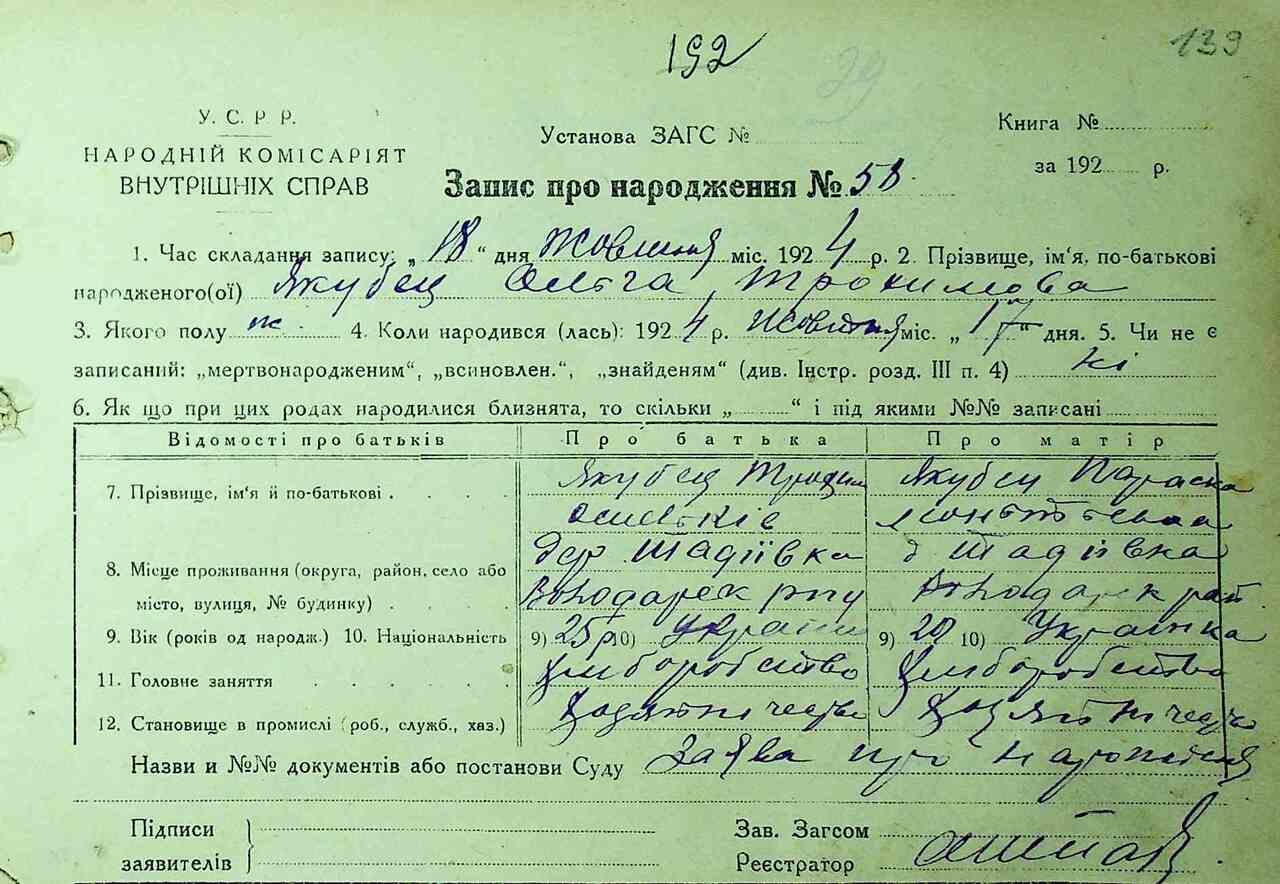 192
139
29
У. С. Р. Р.
НАРОДНІЙ КОМІСАРІЯТ
ВНУТРІШНІХ СПРАВ
Установа ЗАГС №
Книга №
за 192 р.
Запис про народження № 58
1. Час складання запису: „18“ дня Жовтня міс. 1924 р. 2. Прізвище, ім'я, по-батькові
народженого(ої) Якубец Ольга Трохимова
3. Якого полу ж. 4. Коли народився (лась): 1924 р. Жовтня міс. „17“ дня. 5. Чи не є
записаний: „мертвонародженим“, „всиновлен.“, „знайденям“ (див. Інстр. розд. III п. 4) ні
6. Як що при цих родах народилися близнята, то скільки „ “ і під якими №№ записані
Відомості про батьків Про батька Про матір
7. Прізвище, ім'я й по-батькові Якубец Якубец Параска
8. Місце проживання (округа, район, село або Тадіївка Тадіївка
місто, вулиця, № будинку) Володарск Володарск рай
9. Вік (років од народж.) 10. Національність 9) 25 р 10) 9) 20 10) Українка
11. Головне заняття
12. Становище в промислі (роб., служб., хаз.)
Назви и №№ документів або постанови Суду Заява про народження
Підписи
заявителів
Зав. Загсом
Реєстратор